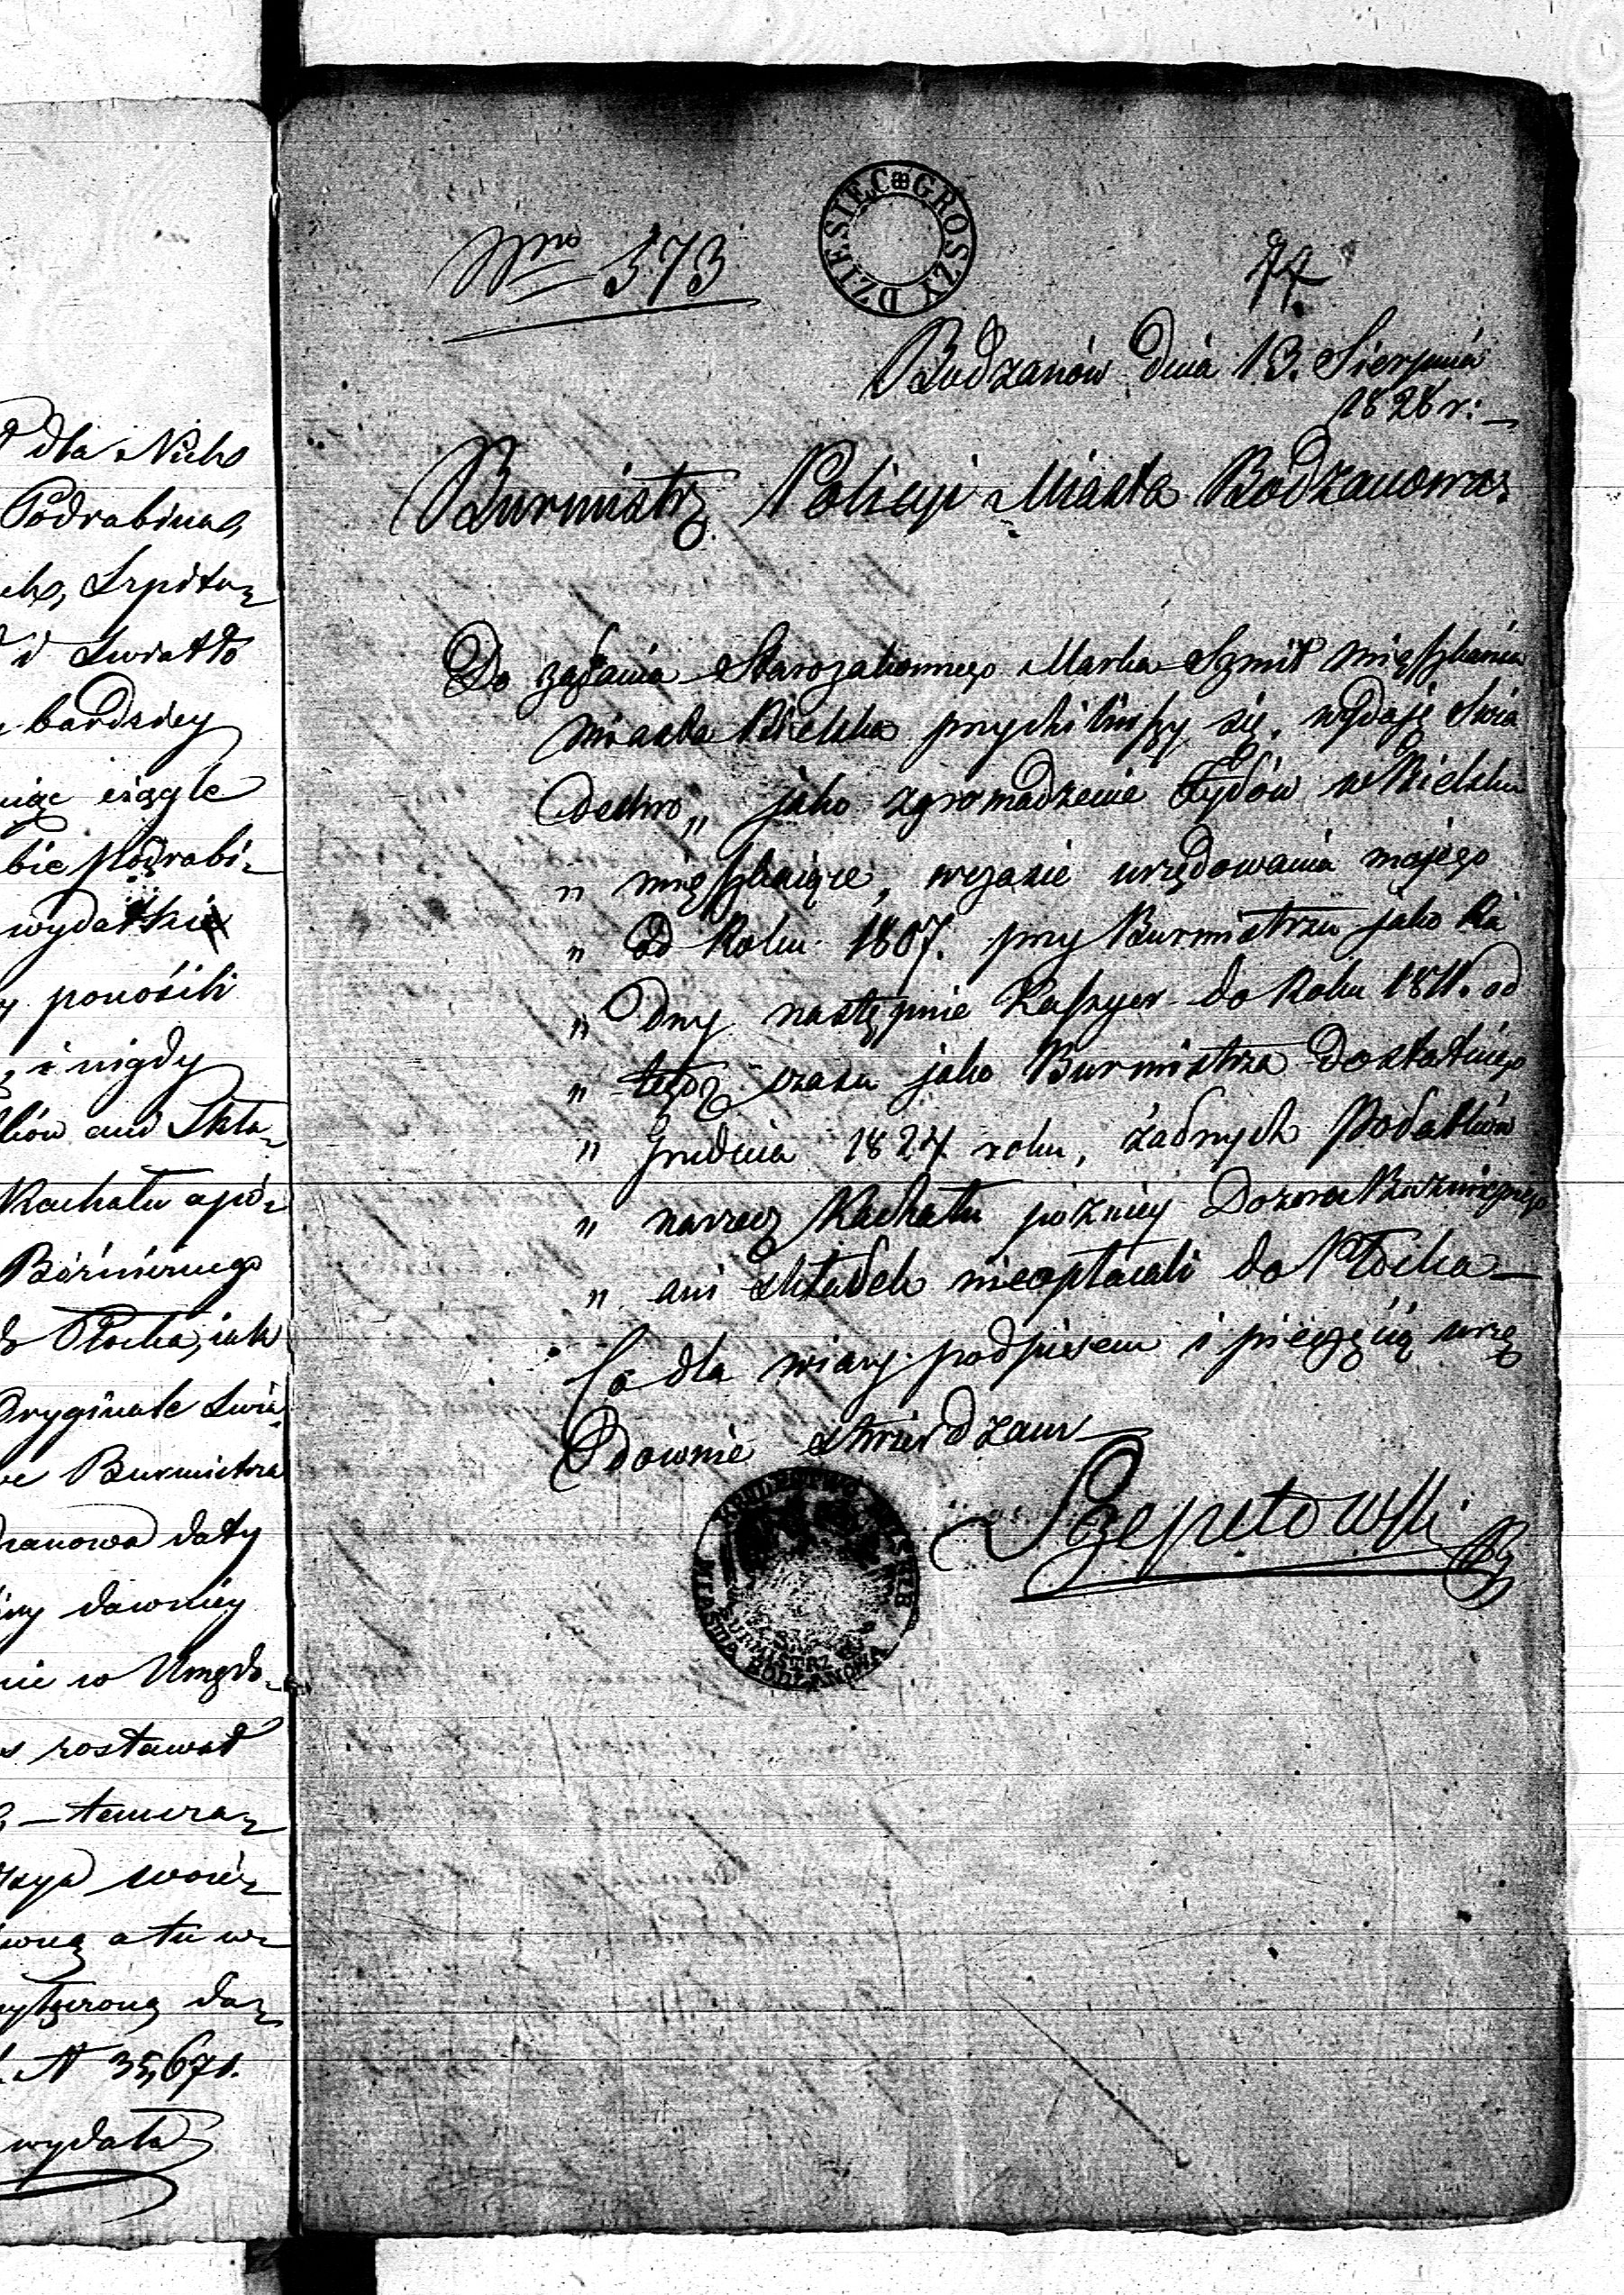 P dla Nich
Podrabina,
ich, Szpital
i Swiatło
bardziey
ciągle
bie podrabi-
wydatki
ponośili
i nigdy
ani Skła-
Kachału a pó-
Bóżnicznego
Płocka, iak
Oryginale Swia
Burmistrza
dzanowa daty
dawniey
nie w Urzędo-
zostawał
wną a tu w
da-
N 35,671.
wydała
Nro 373
DZIESIĘC GROSZY
77.
Bodzanów dnia 13. Sierpnia
1828 r:
Burmistrz Policyi Miasta Bodzanowa
Do żądania Starozakonnego Marka Szmit mięszkańca
miasta Bielska przychiliwszy się, wydaję Świa
dectwo „ jako zgromadzenie Żydów w Bielsku
„ mięszkaiące, w czasie urzędowania mojego
„ od Roku 1807. przy Burmistrzu jako Ra
„ dny następnie Kassyer do Roku 1811. od
„ tegoż czasu jako Burmistrza do ostatniego
„ Grudnia 1827 roku, żadnych Podatków
„ na rzecz Kachału pożniey Dozoru Bożnicznego
„ ani składek nieopłacali do Płocka —
Co dla wiary podpisem i pieczęcią urzę
downie stwierdzam
Szepetowski
MIASTA BODZANOWA
BURMISTRZ